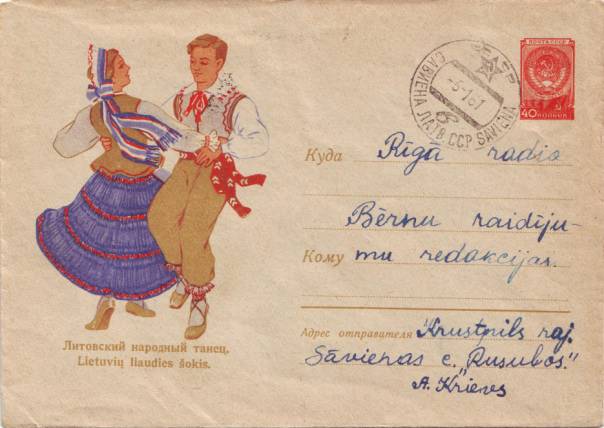 ПОЧТА СССР
40 КОПЕЕК
САВИЕНА ЛАТВ. ССР SAVIENA
Куда Rīgā radio
Bērnu raidīju-
Кому mu redakcijai.
Адрес отправителя Krustpils raj.
Sāvienas c. „Rusubos."
A. Krievs
Литовский народный танец.
Lietuvių liaudies šokis.